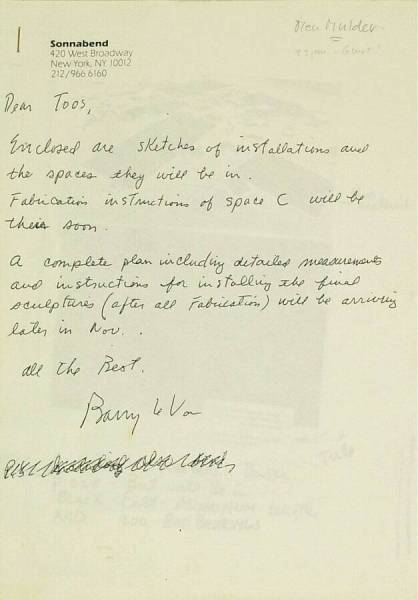 Sonnabend
420 West Broadway
New York, NY 10012
212/966 6160
Mulder
Dear Toos,
Enclosed are sketches of installations and
the spaces they will be in.
Fabrication instructions of space C will be
their soon.
A complete plan including detailed measurements
and instructions for installing the final
sculptures (after all Fabrication) will be arriving
later in Nov..
all the Best.
Barry Le Va